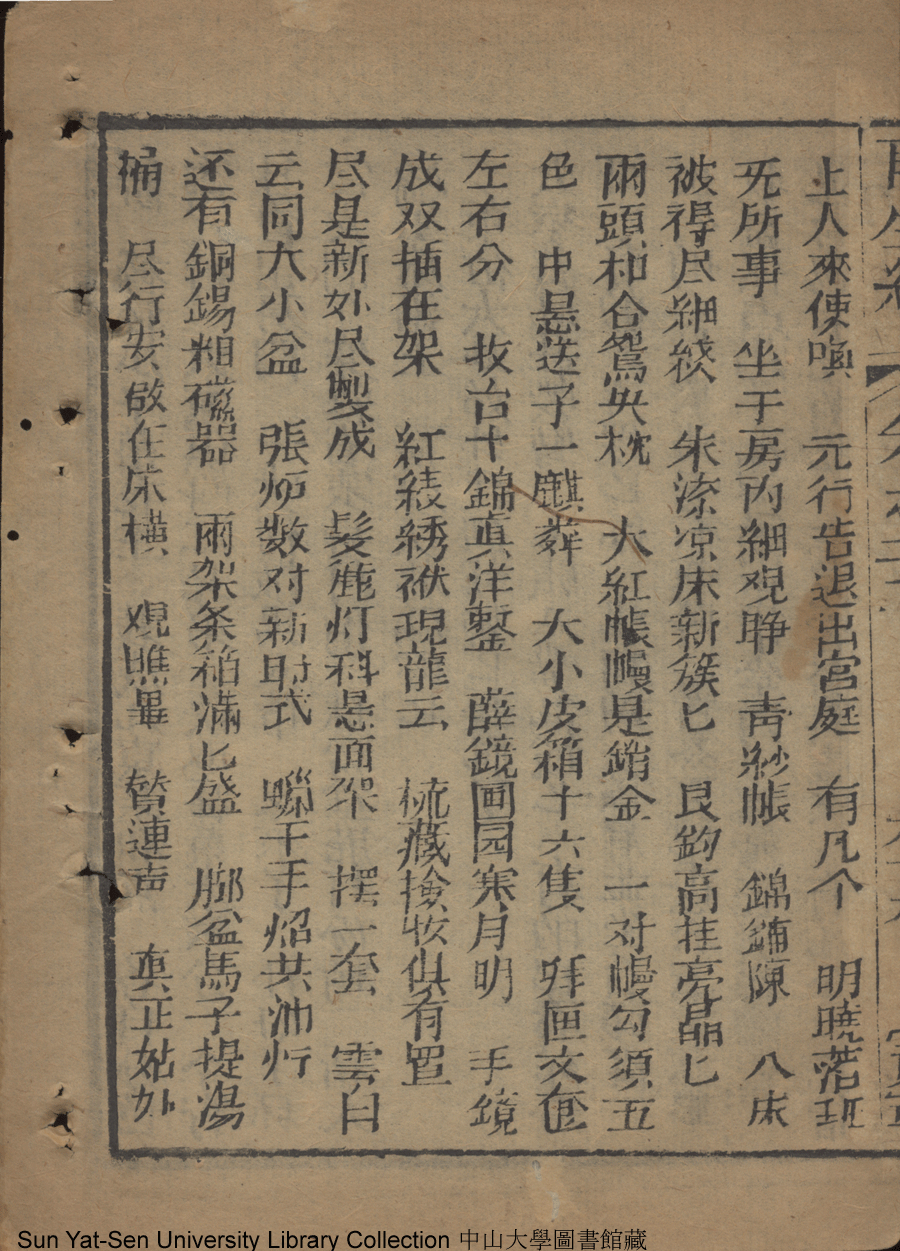 上人來使喚　元行告退出宮庭　有凡个　明曉落班
旡所事　坐于房內細观睁　青紗帳　錦鋪陳　八床
被得尽細綾　朱漆凉床新簇匕　艮鈎高挂亮晶匕
兩頭和合鴛央枕　大紅帳幔是銷金　一对幔勾須五
色　中悬送子一麒麟　大小皮箱十六隻　拜匣文套
左右分　妆台十錦真洋鏨　薛鏡圃园寒月明　手鏡
成双插在架　紅綾綉袱現龍云　梳藏撿妆俱有置
尽是新处尽製成　髮鹿灯科悬面架　擺一套　雲白
云同大小盆　張炉数对新时式　蠟干手炤共油灯
还有銅錫粗磁器　兩架条箱滿匕盛　脚盆馬子提湯
桶　尽行安放在床横　观瞧畢　賛連声　真正姑外
Sun Yat-Sen University Library Collection 中山大學圖書館藏